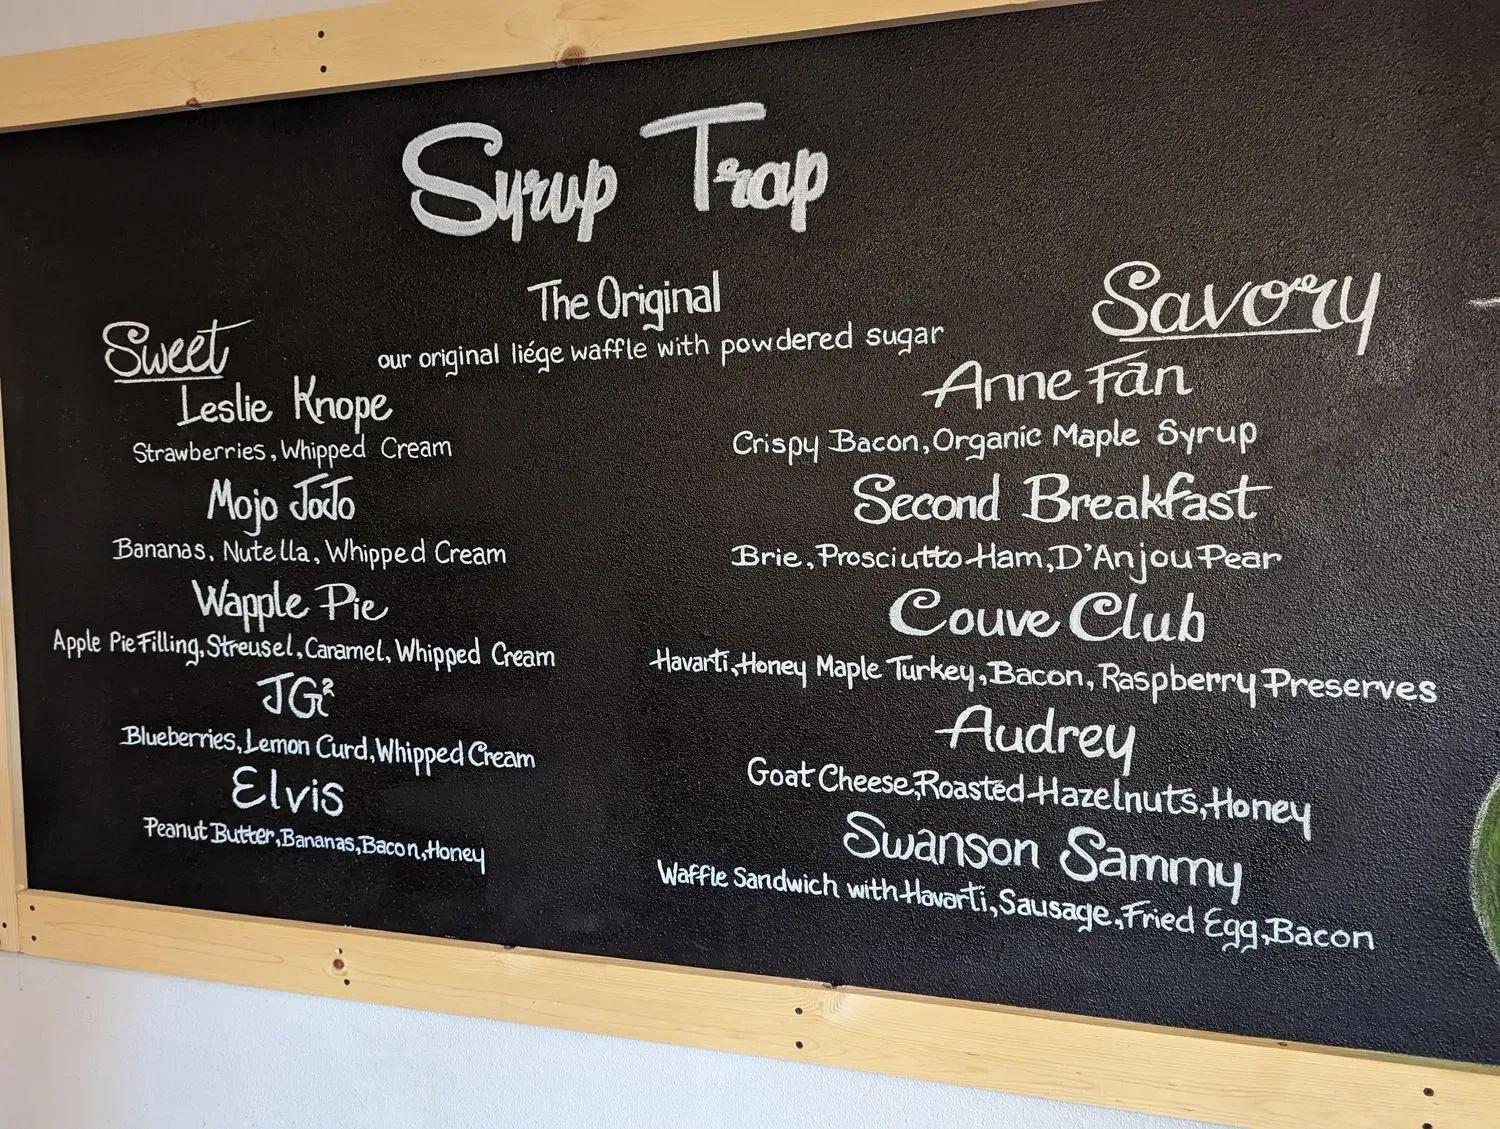 Syrup Trap
The Original
our original liége waffle with powdered sugar
Sweet
Leslie Knope
Strawberries, Whipped Cream
Mojo JoJo
Bananas, Nutella, Whipped Cream
Wapple Pie
Apple Pie Filling, Streusel, Caramel, Whipped Cream
JG²
Blueberries, Lemon Curd, Whipped Cream
Elvis
Peanut Butter, Bananas, Bacon, Honey
Savory
Anne Fán
Crispy Bacon, Organic Maple Syrup
Second Breakfast
Brie, Prosciutto Ham, D'Anjou Pear
Couve Club
Havarti, Honey Maple Turkey, Bacon, Raspberry Preserves
Audrey
Goat Cheese, Roasted Hazelnuts, Honey
Swanson Sammy
Waffle Sandwich with Havarti, Sausage, Fried Egg, Bacon